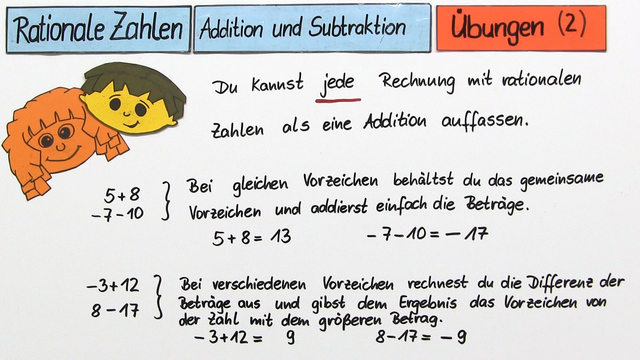 Rationale Zahlen
Addition und Subtraktion
Übungen (2)
Du kannst jede Rechnung mit rationalen
Zahlen als eine Addition auffassen.
5+8
-7-10
Bei gleichen Vorzeichen behältst du das gemeinsame
Vorzeichen und addierst einfach die Beträge.
5+8= 13
-7-10= -17
-3+12
8-17
Bei verschiedenen Vorzeichen rechnest du die Differenz der
Beträge aus und gibst dem Ergebnis das Vorzeichen von
der Zahl mit dem größeren Betrag.
-3+12= 9
8-17= -9